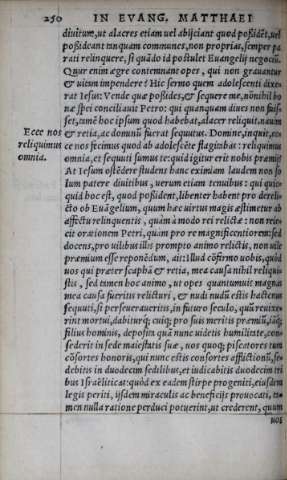 250 IN EVANG. MATTHAEI
diuitum, ut alacres etiam uel abijciant quod possidẽt, uel
possideant tanquam communes, non proprias, semper pa
rati relinquere, si quãdo id postulet Euangelij negociũ.
Quur enim ægre contemnant opes, qui non grauantur
& uitam impendere? Hic sermo quem adolescenti dixe-
rat Iesus: Vende quæ possides, & sequere me, nõnihil bo
næ spei conciliauit Petro: qui quanquam diues non fuis-
set, tamẽ hoc ipsum quod habebat, alacer reliquit, nauim
Ecce nos
& retia, ac dominũ fuerat sequutus. Domine, inquit, nos
reliquimus
ce nos fecimus quod ab adolescẽte flagitabas: reliquimus
omnia.
omnia, et sequuti sumus te: quid igitur erit nobis præmij?
At Iesum ostẽdere studens hanc eximiam laudem non so
lum patere diuitibus, uerum etiam tenuibus: qui quic-
quid hoc est, quod possident, libenter habent pro dereli-
cto ob Euãgelium, quam hæc uirtus magis æstimetur ab
affectu relinquentis, quàm à modo rei relictæ: non reie-
cit orationem Petri, quasi pro re magnificentiorem: sed
docens, pro uilibus illis prompto animo relictis, non uile
præmium esse reponẽdum, ait: Illud cõfirmo uobis, quòd
uos qui præter scaphã & retia, mea causa nihil reliqui-
stis, sed tamen hoc animo, ut opes quantumuis magnas
mea causa fueritis relicturi, & nudi nudũ estis hactenus
sequuti, si perseueraueritis, in futuro seculo, quũ reuixe-
rint mortui, dabiturq; cuiq; pro suis meritis præmiũ, tũq;
filius hominis, deposita quã nunc uidetis humilitate, con-
sederit in sede maiestatis suæ, nos quoq; piscatores tum
cõsortes honoris, qui nunc estis consortes afflictionũ, se-
debitis in duodecim sedilibus, et iudicabitis duodecim tri
bus Israëliticas: quòd ex eadem stirpe progeniti, eiusdem
legis periti, ijsdem miraculis ac beneficijs prouocati, ta-
men nulla ratione perduci potuerint, ut crederent, quum
uos